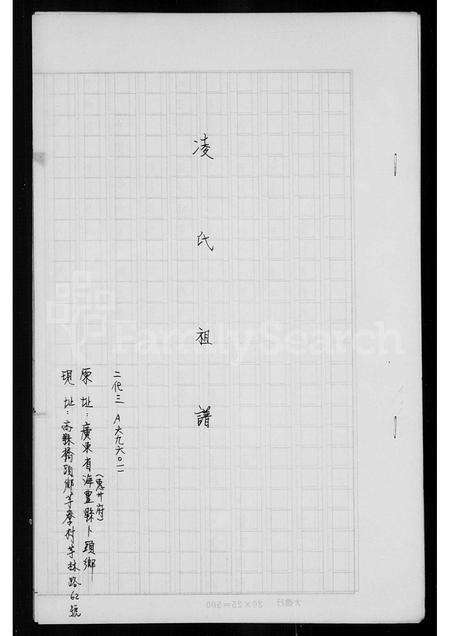 凌氏祖譜
二代三 A大九六○二
原址：廣東省海豐縣卜頭鄉
(惠州府)
現址：高縣橋頭鄉芋寮村芋林路62號
FamilySearch
20×25=500